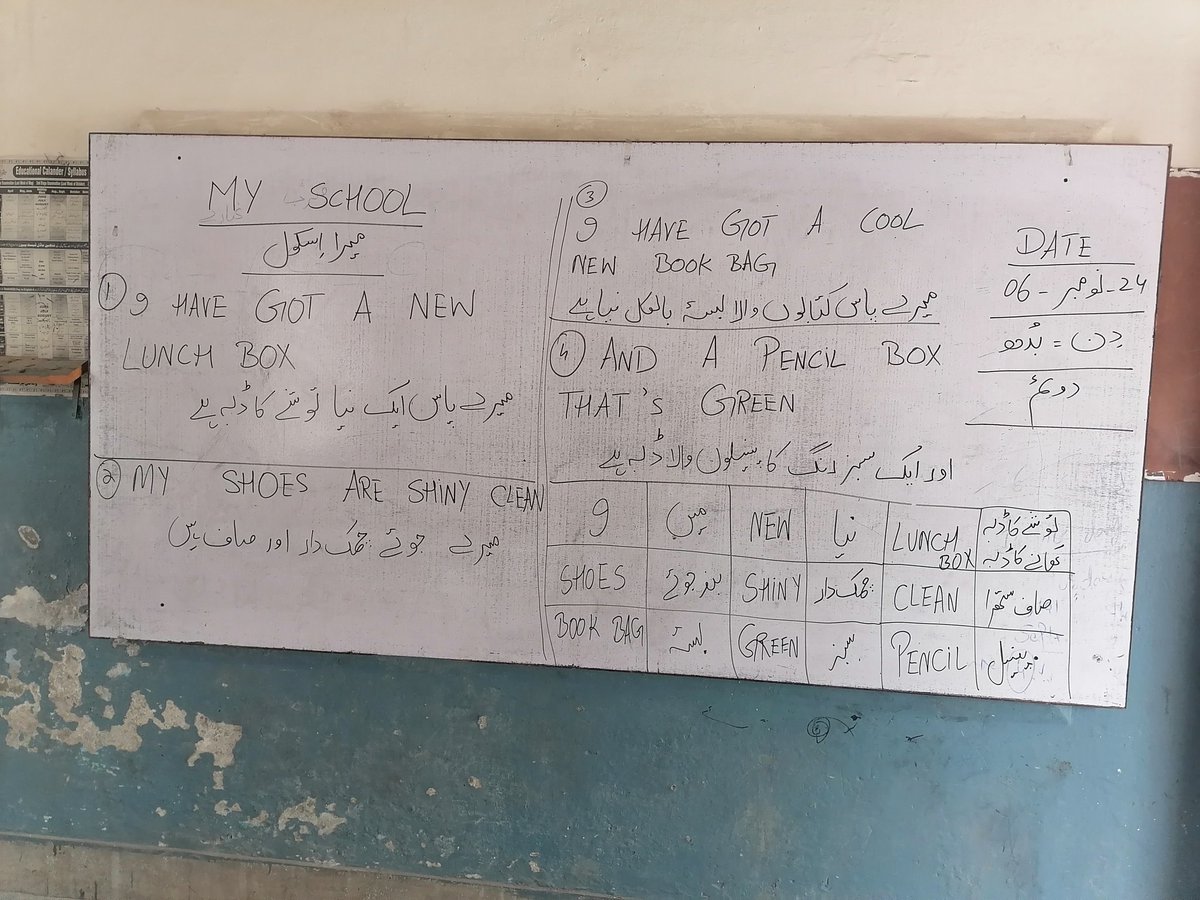 Educational Calander / Syllabus
MY SCHOOL
میرا اسکول
① I HAVE GOT A NEW
LUNCH BOX
میرے پاس ایک نیا توشے کا ڈبہ ہے
② MY SHOES ARE SHINY CLEAN
میرے جوتے چمک دار اور صاف ہیں
③
I HAVE GOT A COOL
NEW BOOK BAG
میرے پاس کتابوں والا بستہ بالکل نیا ہے
④ AND A PENCIL BOX
THAT'S GREEN
اور ایک سبز رنگ کا پینسلوں والا ڈبہ ہے
DATE
06 - نومبر - 24
دن = بُدھ
دوئم
I میں NEW نیا LUNCH BOX توشے کا ڈبہ کھانے کا ڈبہ
SHOES بند جوتے SHINY چمک دار CLEAN صاف ستھرا
BOOK BAG بستہ GREEN سبز PENCIL پینسل